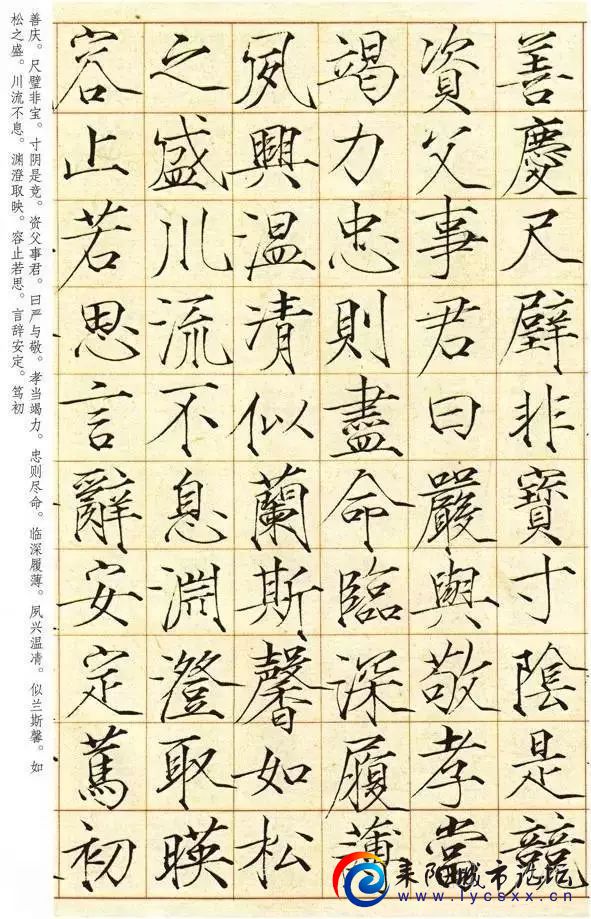 善慶尺璧非寶寸陰是競
資父事君曰嚴與敬孝當
竭力忠則盡命臨深履薄
夙興温凊似蘭斯馨如松
之盛川流不息淵澄取暎
容止若思言辭安定篤初
善庆。尺璧非宝。寸阴是竞。资父事君。曰严与敬。孝当竭力。忠则尽命。临深履薄。夙兴温凊。似兰斯馨。如
松之盛。川流不息。渊澄取映。容止若思。言辞安定。笃初
耒阳城市论坛
www.lycsxx.cn